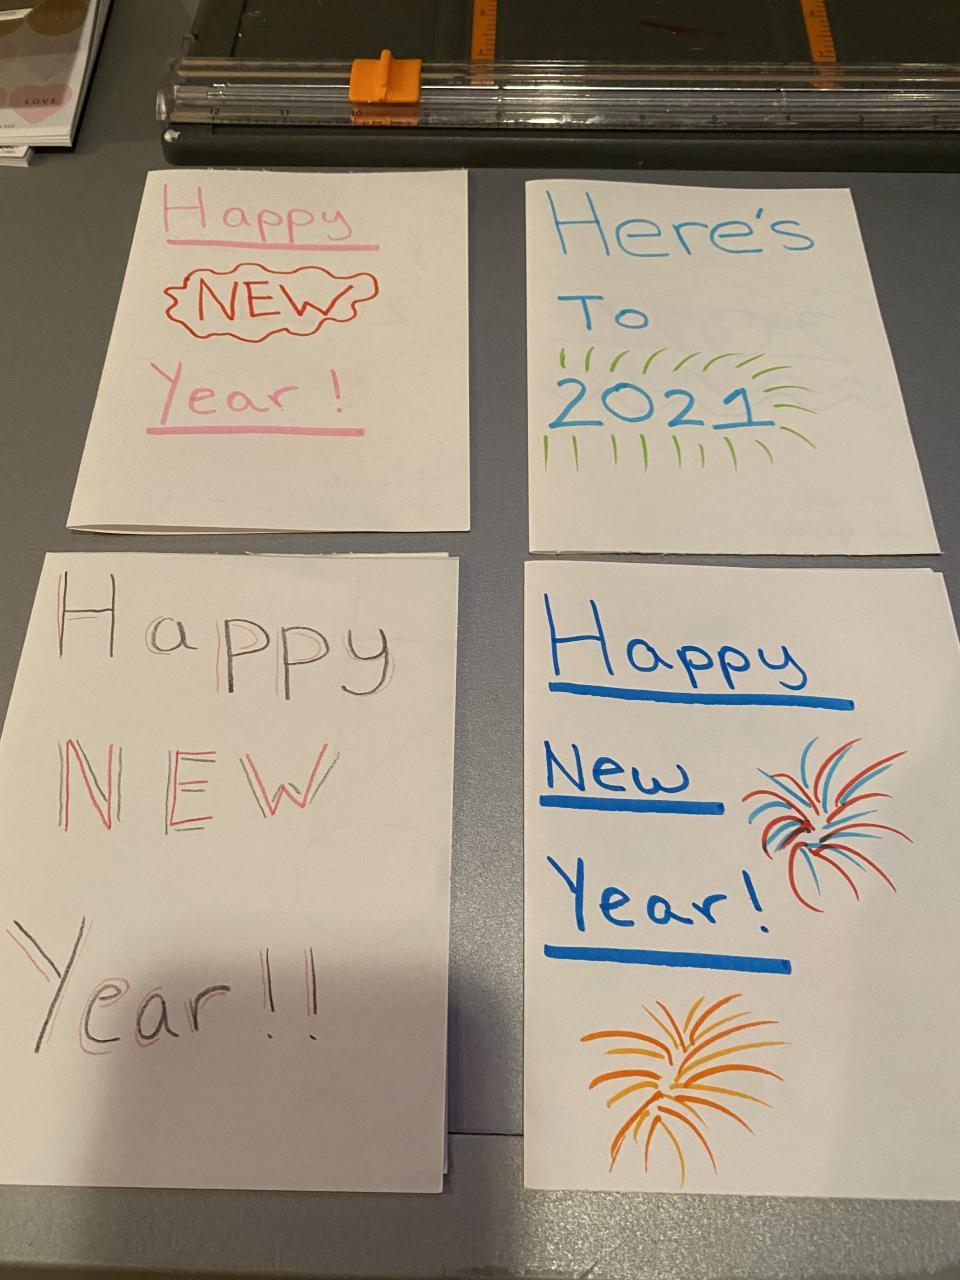 LOVE
12 11 10 9 8 7 6 5 4 3 2
Happy
NEW
Year!
Here's
To
2021
Happy
NEW
Year!!
Happy
New
Year!